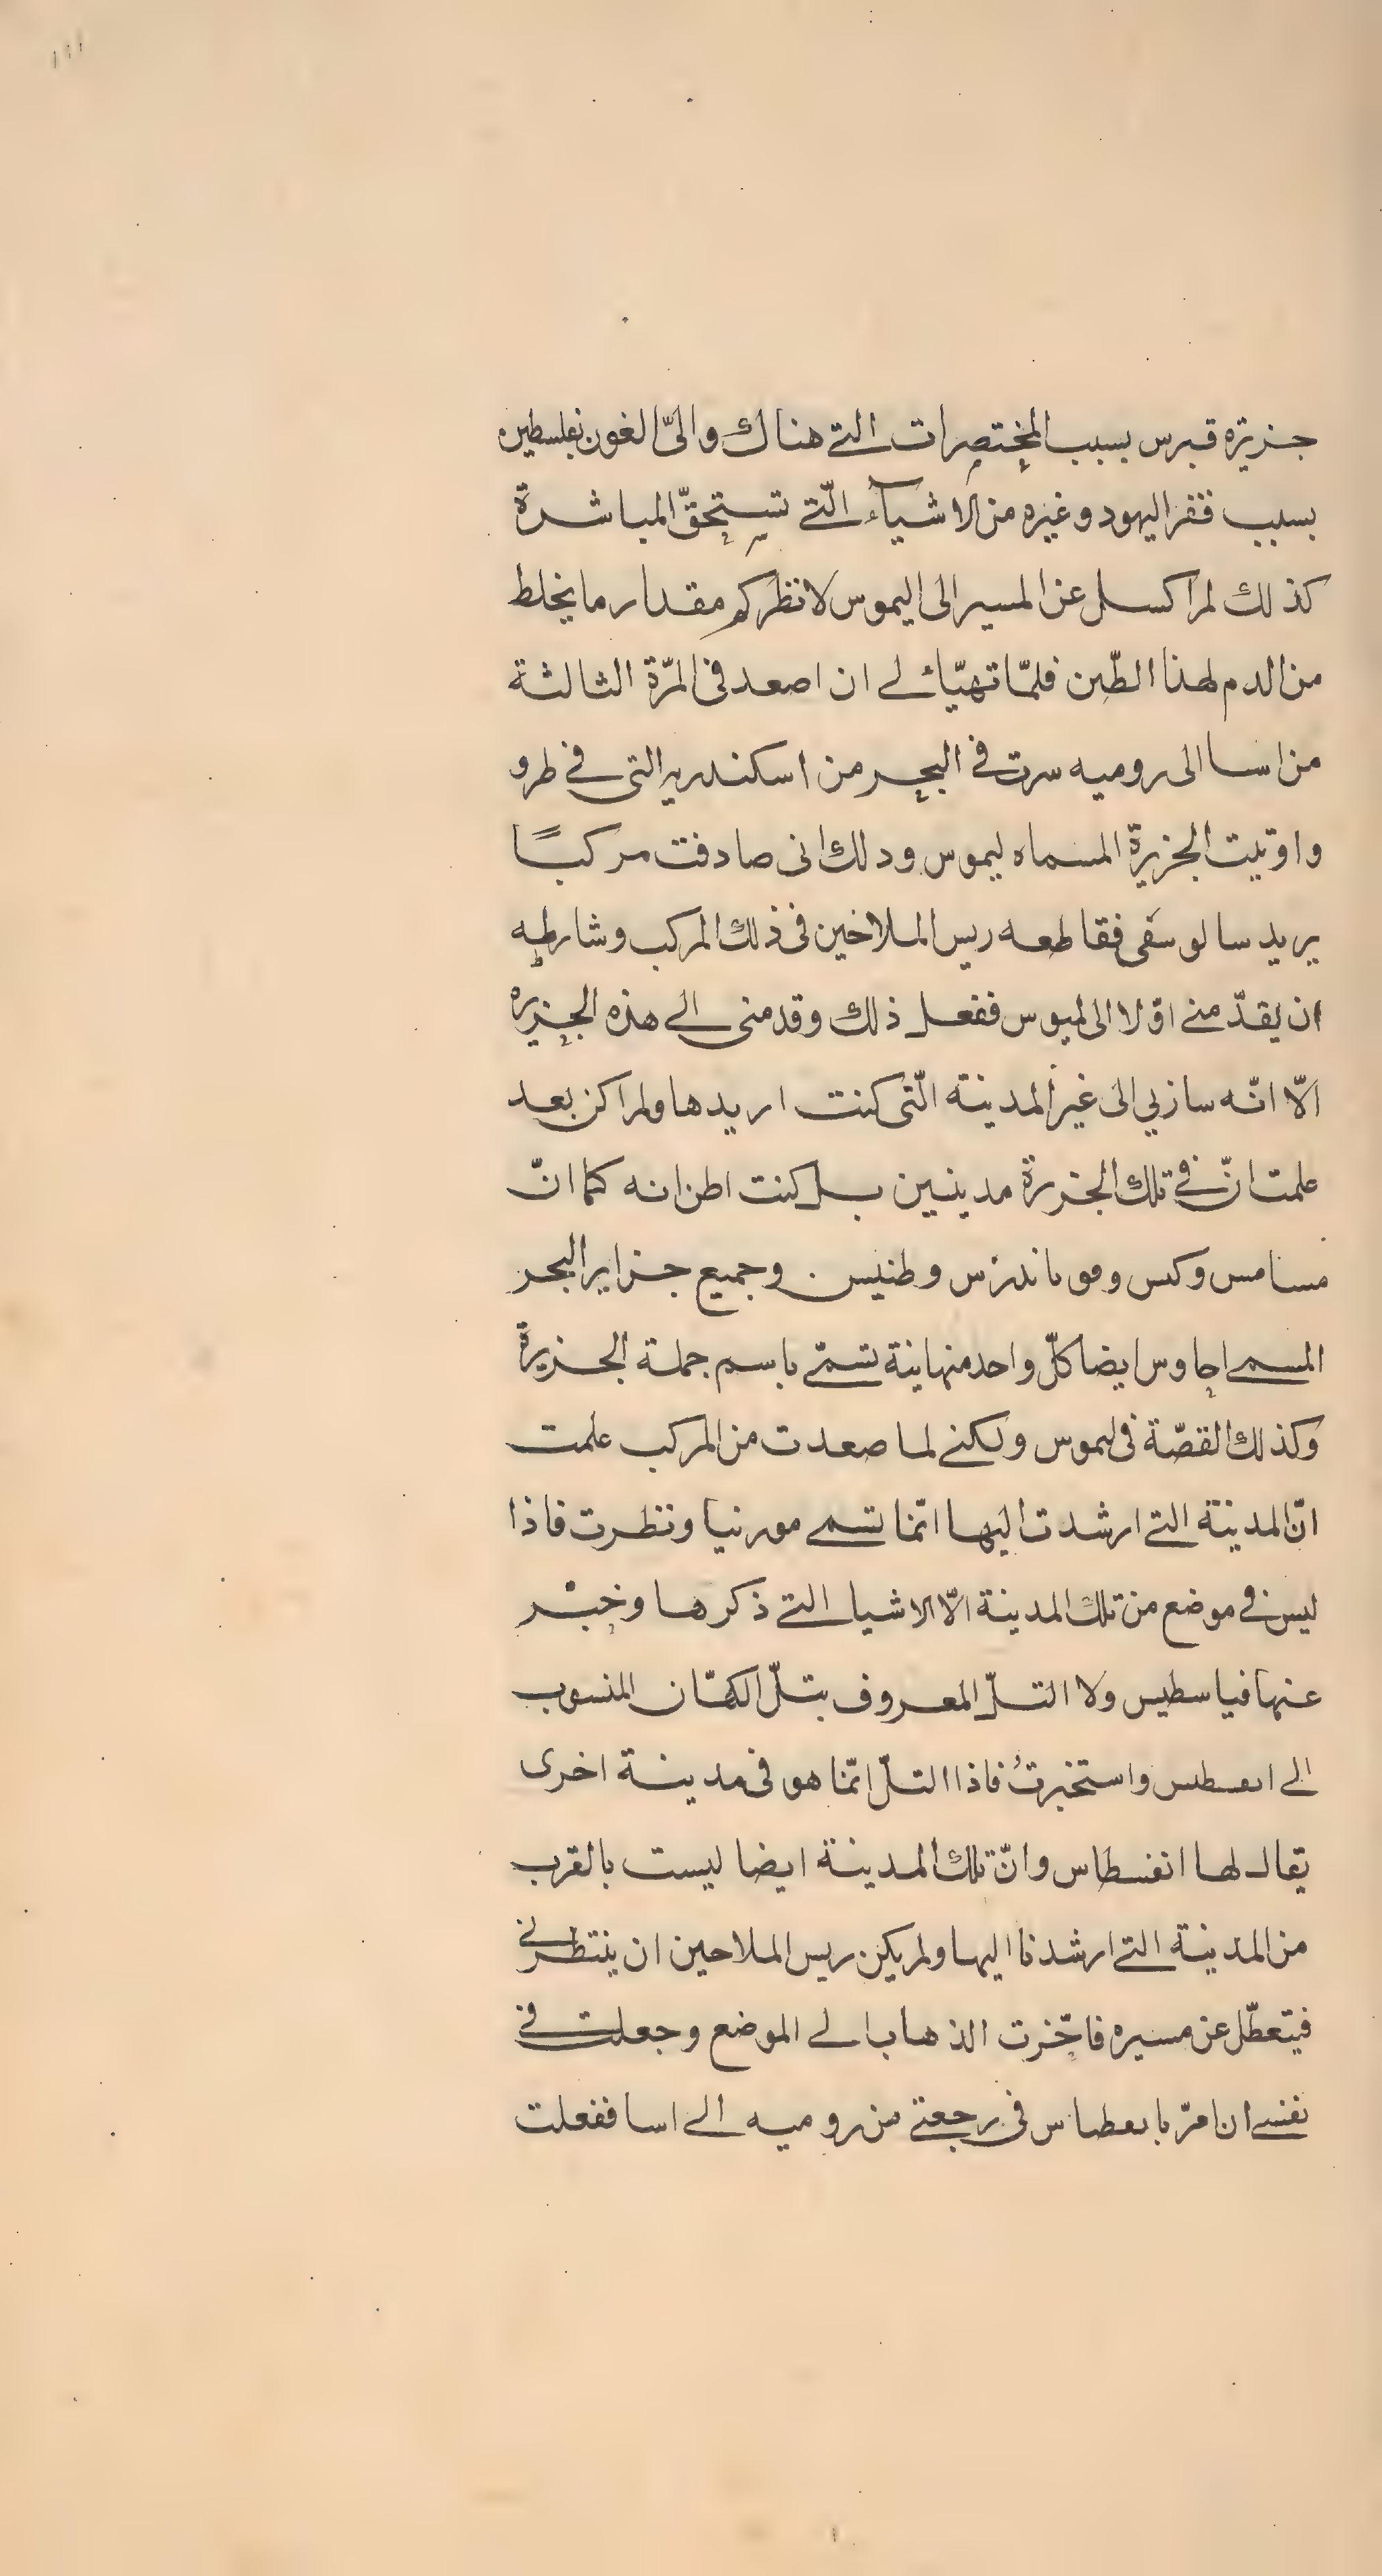 ١١١
جزيره قبرس بسبب المختصرات التي هناك والىّ الغون بفلسطين
بسبب فقر اليهود وغيره من الاشيآء الّتي تستحقّ المباشرة
كذلك لم اكسل عن المسير الى اليموس لانظر كم مقدار ما يخلط
من الدم لهذا الطّين فلمّا تهيّأ لي ان اصعد في المرّة الثالثة
من اسا الى روميه سرت في البحر من اسكندريه التي في طرو
واوتيت الجزيرة المسماه ليموس ودلك انى صادفت مركبًا
يريد سالوسقى فقاطعه ريس الملاخين في ذلك المركب وشارطه
ان يقدّمني اوّلا الى لميوس ففعل ذلك وقدمنى الي هذه الجزيره
الّا انّه سازبي الى غير المدينة الّتى كنت اريدها ولم اكن بعد
علمت انّ في تلك الجزيرة مدينين بل كنت اظن انه كما انّ
مسامس وكس وموباندرس وطنيس وجميع جزاير البحر
المسمي اجاوس ايضا كلّ واحد منها ينة تسمّي باسم جملة الجزيرة
وكذلك القصّة في ليموس ولكني لما صعدت من المركب علمت
انّ المدينة التي ارشدت اليها انّما تسمي مورنيا ونظرت فاذا
ليس في موضع من تلك المدينة الّا الاشيا التي ذكرها وخبّر
عنها فياسطيس ولا التلّ المعروف بتلّ الكهّان المنسوب
الي واستخبرتُ فاذا التلّ انّما هو في مدينة اخرى
يقال لها انفسطاس وانّ تلك المدينة ايضا ليست بالقرب
من المدينة التي ارشدنا اليها ولم يكن ريس الملاحين ان ينتظرني
فيتعطّل عن مسيره فاخّرت الذهاب الي الموضع وجعلت في
نفسي ان امرّ في رجعتي من روميه الي اسا ففعلت